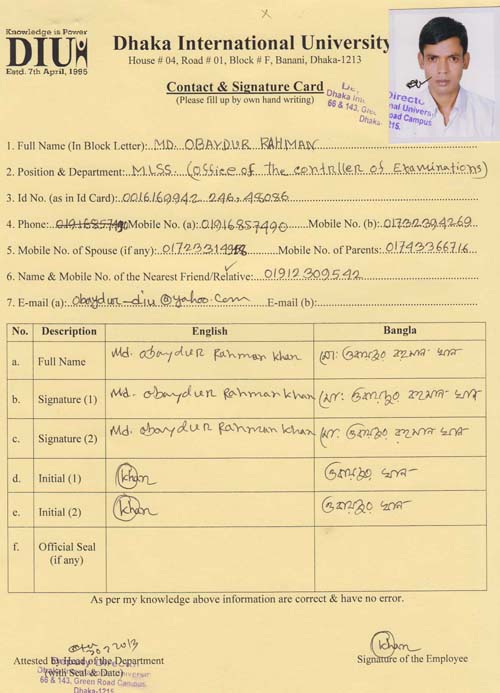 Knowledge is Power
DIU
Estd. 7th April, 1995
Dhaka International University
House # 04, Road # 01, Block # F, Banani, Dhaka-1213
Contact & Signature Card
(Please fill up by own hand writing)
66 & 143, Green Road Campus
Dhaka-1215.
1. Full Name (In Block Letter): MD. OBAYDUR RAHMAN
2. Position & Department: M.L.SS. (Office of The contrller of Examinations)
3. Id No. (as in Id Card): 0016169942 246, 48086
4. Phone: Mobile No. (a): 01916857490 Mobile No. (b): 01732394269
5. Mobile No. of Spouse (if any): Mobile No. of Parents: 01743366716
6. Name & Mobile No. of the Nearest Friend/Relative: 01912309542
7. E-mail (a): obaydur_diu@yahoo.com E-mail (b):
No. Description English Bangla
a. Full Name Md. obaydur Rahman khan মো: ওবায়দুর রহমান খান
b. Signature (1) Md. obaydur Rahman khan মো: ওবায়দুর রহমান খান
c. Signature (2) Md. obaydur Rahman khan মো: ওবায়দুর রহমান খান
d. Initial (1) khan ওবায়দুর খান
e. Initial (2) khan ওবায়দুর খান
f. Official Seal (if any)
As per my knowledge above information are correct & have no error.
khan
Attested by Head of the Department
(with Seal & Date)
Signature of the Employee
66 & 143, Green Road Campus,
Dhaka-1215